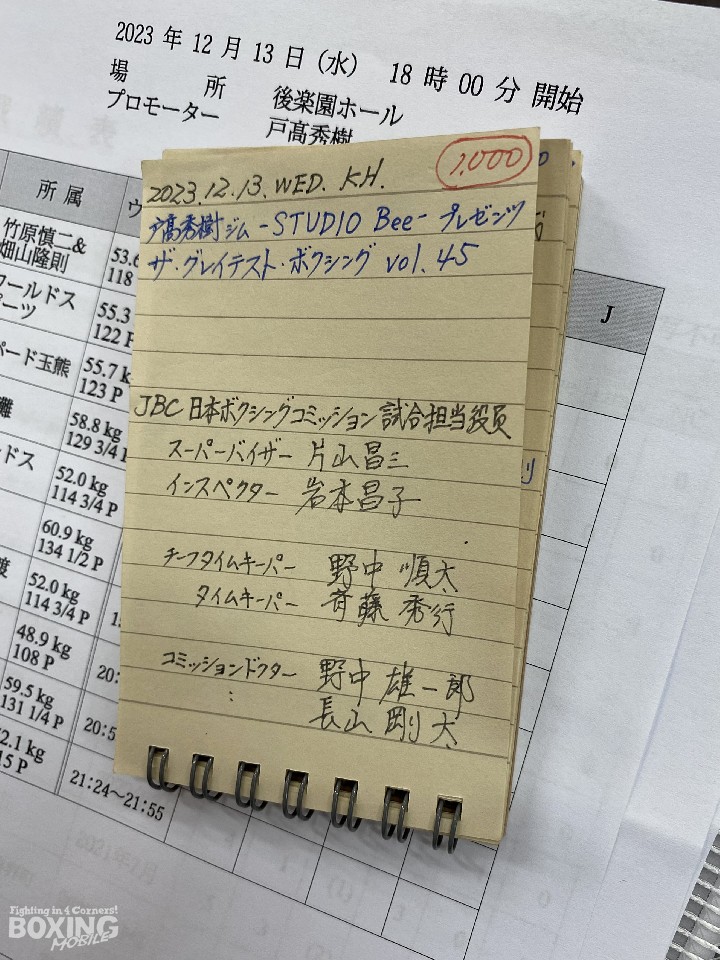 2023 年 12 月 13 日（水） 18 時 00 分 開始
場 所 後楽園ホール
プロモーター 戸髙秀樹
1,000
2023.12.13. WED. KH.
戸髙秀樹ジム -STUDIO Bee- プレゼンツ
ザ・グレイテスト・ボクシング vol.45
JBC 日本ボクシングコミッション 試合担当役員
スーパーバイザー 片山昌三
インスペクター 岩本昌子
チーフタイムキーパー 野中順太
タイムキーパー 斉藤秀行
コミッションドクター 野中雄一郎
： 長山剛太
所 属
J
竹原慎二&
畑山隆則
53.6
118
ワールドス
ポーツ
55.3
122 P
パード玉熊
55.7 k
123 P
灘
58.8 kg
129 3/4 P
ルドス
52.0 kg
114 3/4 P
60.9 kg
134 1/2 P
渡
52.0 kg
114 3/4 P
48.9 kg
108 P
20:
59.5 kg
131 1/4 P
20:5
2.1 kg
15 P
21:24～21:55
Fighting in 4 Corners!
BOXING
MOBILE